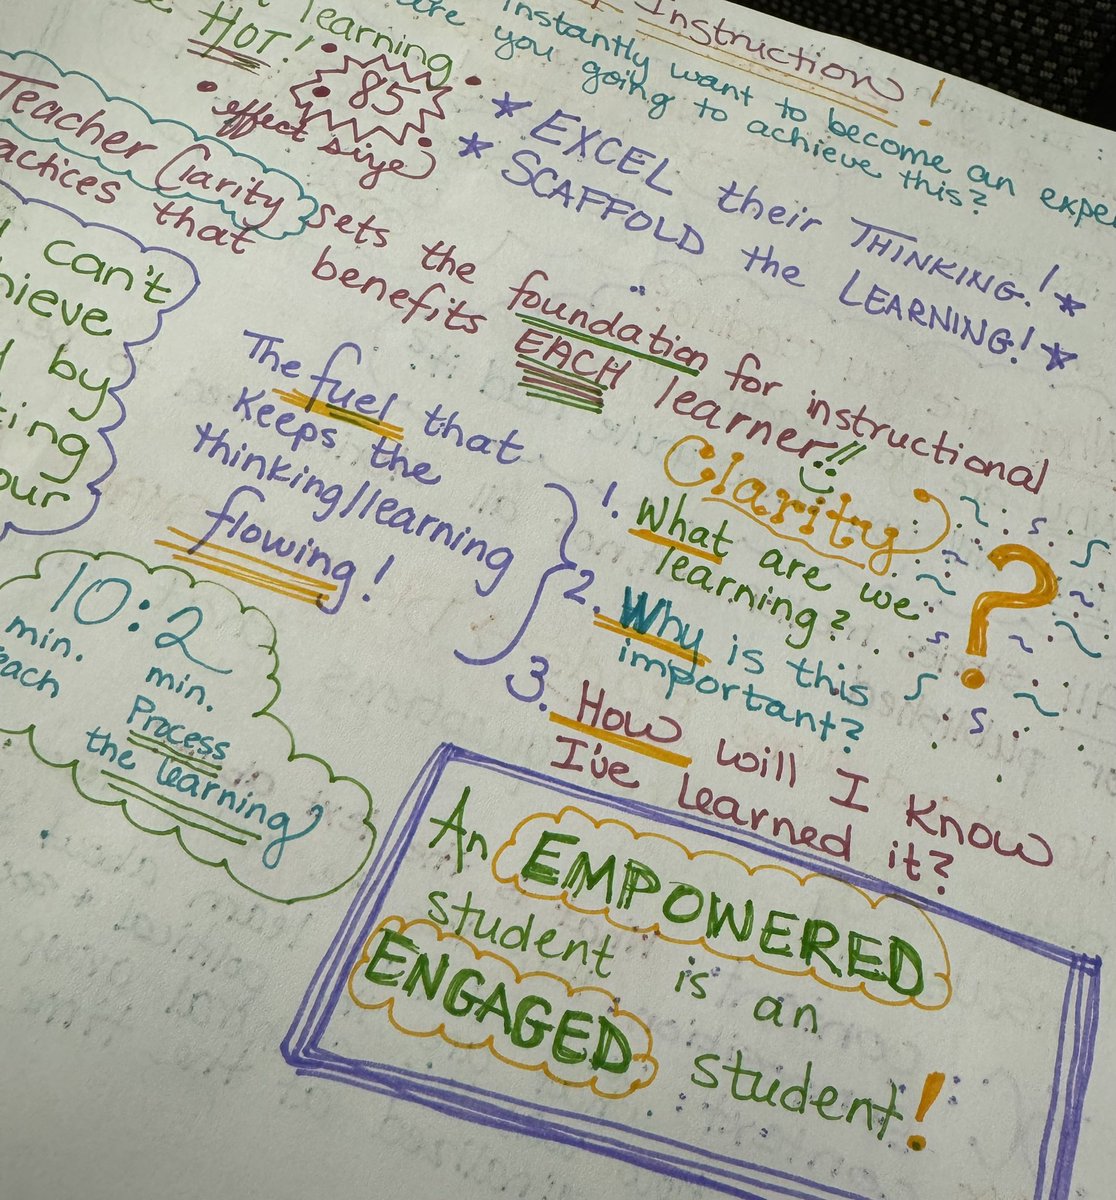 Instruction!
instantly want to become an
are you going to achieve this?
learning
HOT!
• 85 •
• effect size
* EXCEL their THINKING! *
* SCAFFOLD the LEARNING! *
Teacher Clarity sets the foundation for instructional
that benefits EACH learner!!
can't
by
The fuel that
keeps the
thinking/learning
flowing!
Clarity
?
1. What are we
learning?
2. Why is this
important?
3. How will I know
I've learned it?
10:2
min. min.
Process
the learning
An EMPOWERED
student is an
ENGAGED
student!